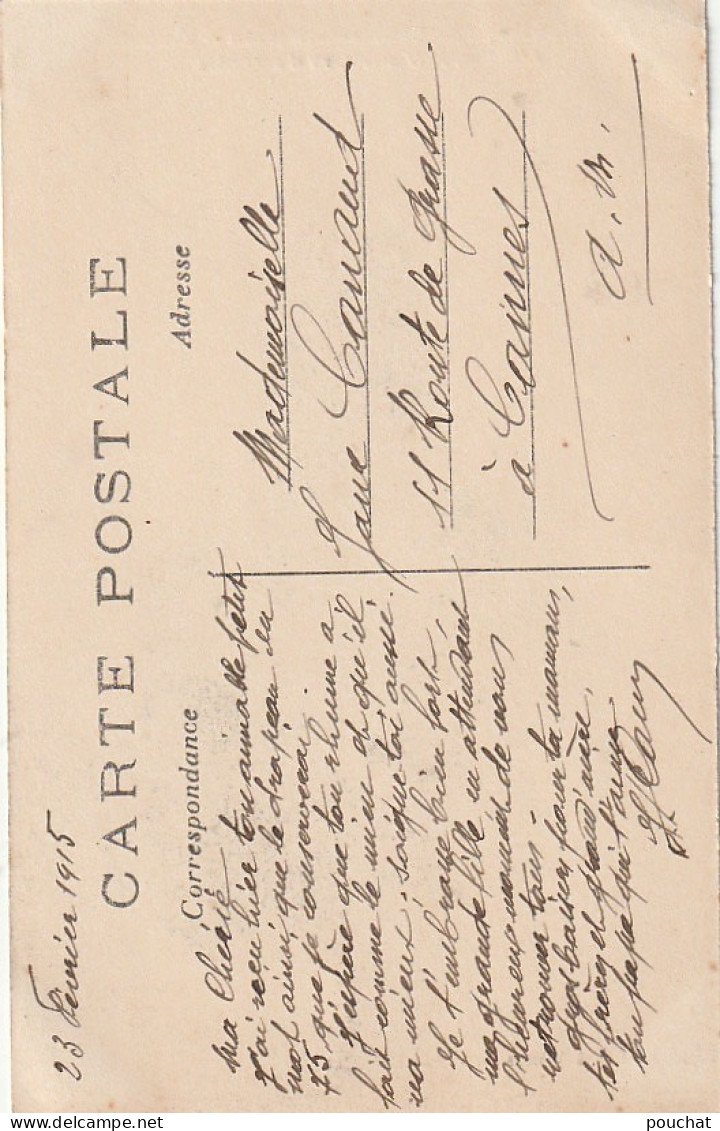 23 Février 1915
CARTE POSTALE
Correspondance
Adresse
Ma Chérie
J'ai reçu hier ton aimable petit
mot ainsi que le drapeau du
75 que je conserverai
J'espère que ton rhume a
fait comme le mien et qu'il
va mieux. soigne toi aussi.
Je t'embrasse bien fort,
ma grande fille en attendant
l'heureux moment de vous
retrouver tous -
Gros baisers pour ta maman,
tes frères et grand'mère,
ton papa qui t'aime
Mademoiselle
Jane
55 Route de Grasse
à Cannes
A. M.
pouchat